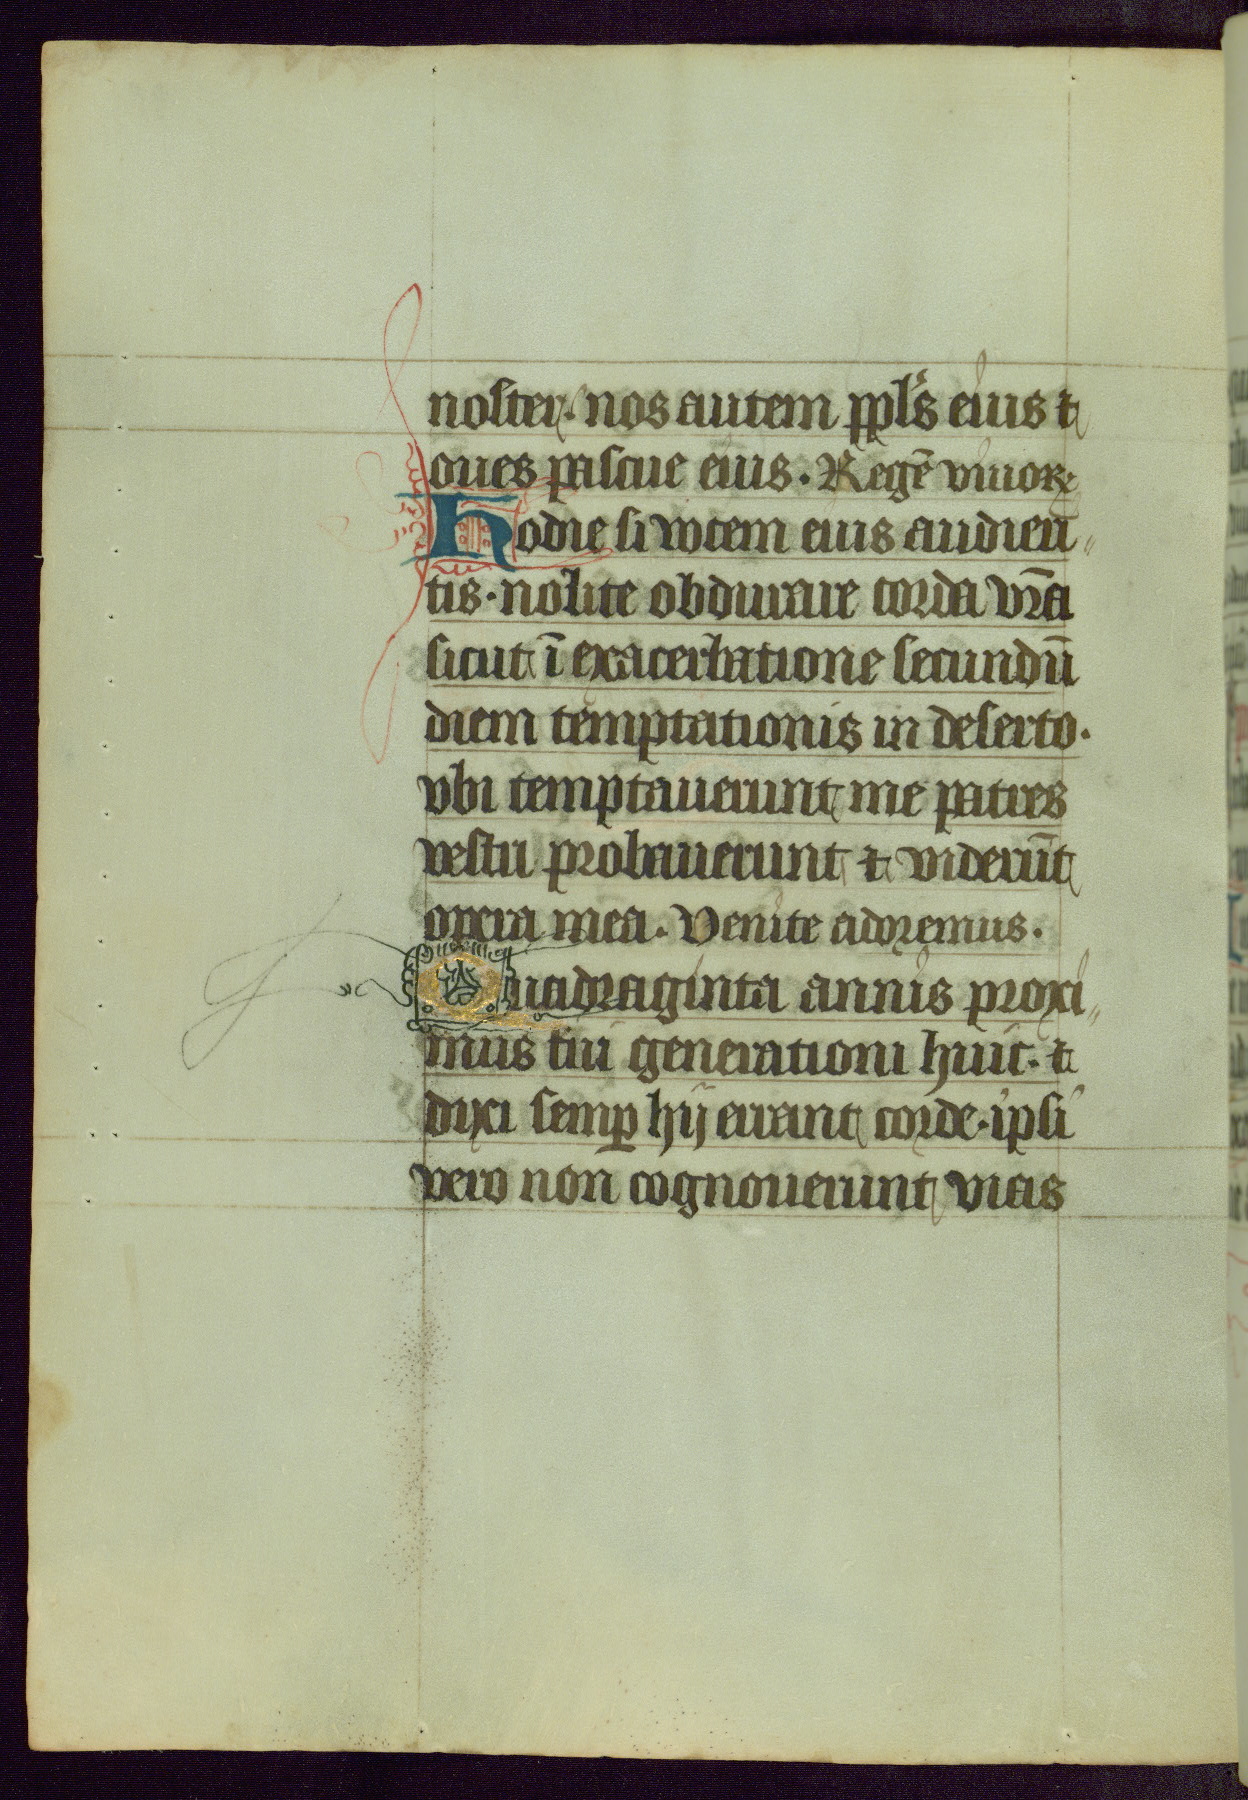 noster. nos autem ppl's eius et
oues pascue eius. Regē viuoꝝ
Hodie si vocem eius audieri„
tis. nolite obdurare corda vr̄a
sicut ī exacerbatione secundū
diem temptationis in deserto.
vbi temptauerunt me patres
vestri probauerunt et viderūt
opera mea. Venite adoremus.
Quadraginta annis proxi„
mus fui generationi huic. et
dixi semꝑ hij errant corde. ipsi
vero non cognouerunt vias